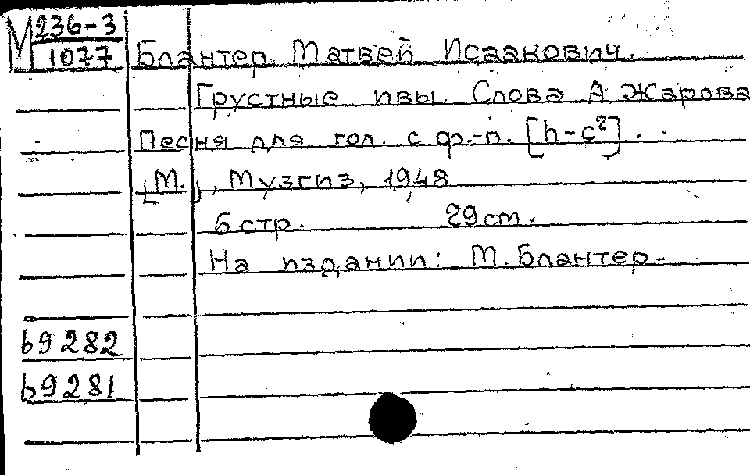 М 236-3
1077
Блантер Матвей Исаакович.
Грустные ивы. Слова А Жарова
Песня для гол. с ф.-п. [h-c²].
[М.], Музгиз, 1948
6 стр. 29 cm.
На издании: М. Блантер.
69282
69281